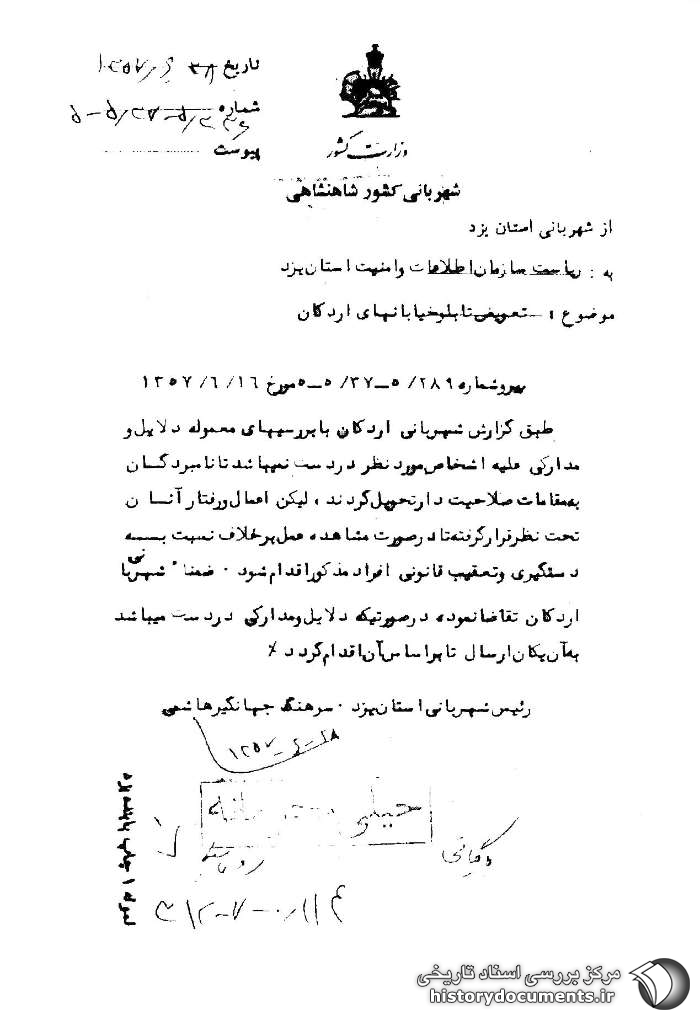 تاریخ ۲۸ ر ۶ ر ۱۳۵۷
شماره
پیوست
وزارت کشور
شهربانی کشور شاهنشاهی
از شهربانی استان یزد
به : ریاست سازمان اطلاعات و امنیت استان یزد
موضوع : تعویض تابلو خیابانهای اردکان
پیرو شماره ۵/۲۸۹ـ۵/۳۷ـ۵ مورخ ۱۳۵۷/۶/۱۶
طبق گزارش شهربانی اردکان با بررسیهای معموله دلایل و
مدارکی علیه اشخاص مورد نظر در دست نمیباشد تا نامبردگان
به مقامات صلاحیت دار تحویل گردند ، لیکن اعمال و رفتار آنان
تحت نظر قرار گرفته تا در صورت مشاهده عمل برخلاف نسبت به
دستگیری و تعقیب قانونی افراد مذکور اقدام شود . ضمنا" شهربانی
اردکان تقاضا نموده در صورتیکه دلایل و مدارکی در دست میباشد
به آن یکان ارسال تا بر اساس آن اقدام گردد ٪
رئیس شهربانی استان یزد . سرهنگ جهانگیر هاشمی
۲۸ـ۶ـ۱۳۵۷
خیلی محرمانه
بایگانی
مرکز بررسی اسناد تاریخی
historydocuments.ir